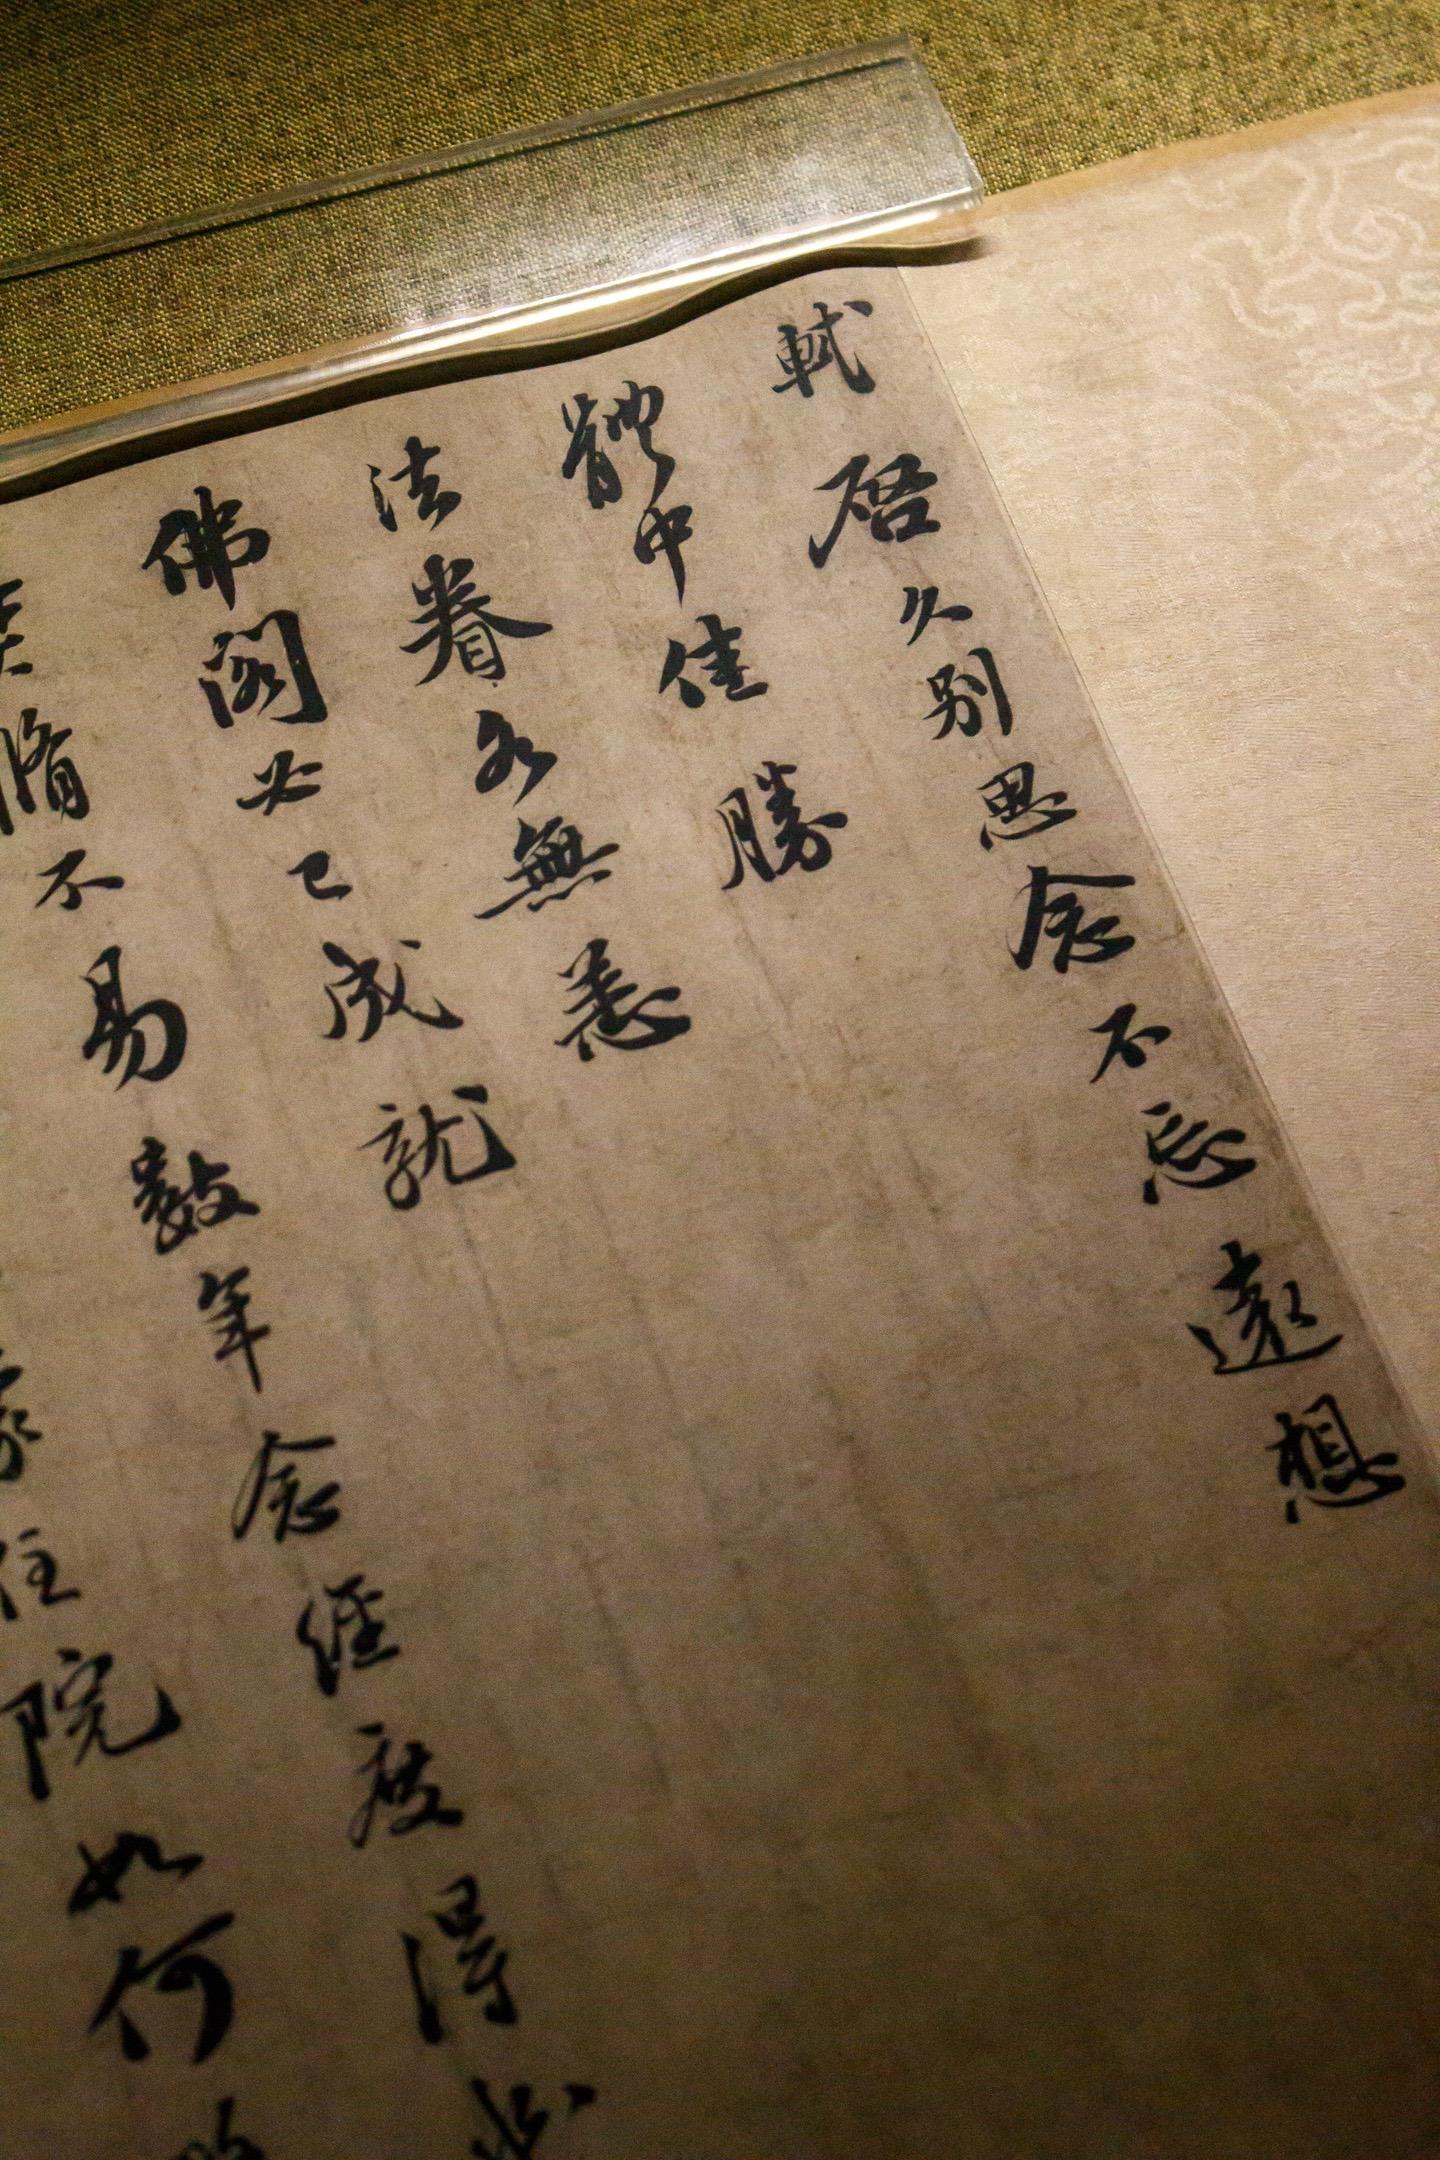 軾啓久別思念不忘遠想
體中佳勝
法眷各無恙
佛閣必已成就
脩不易數年念經度得
住院如何